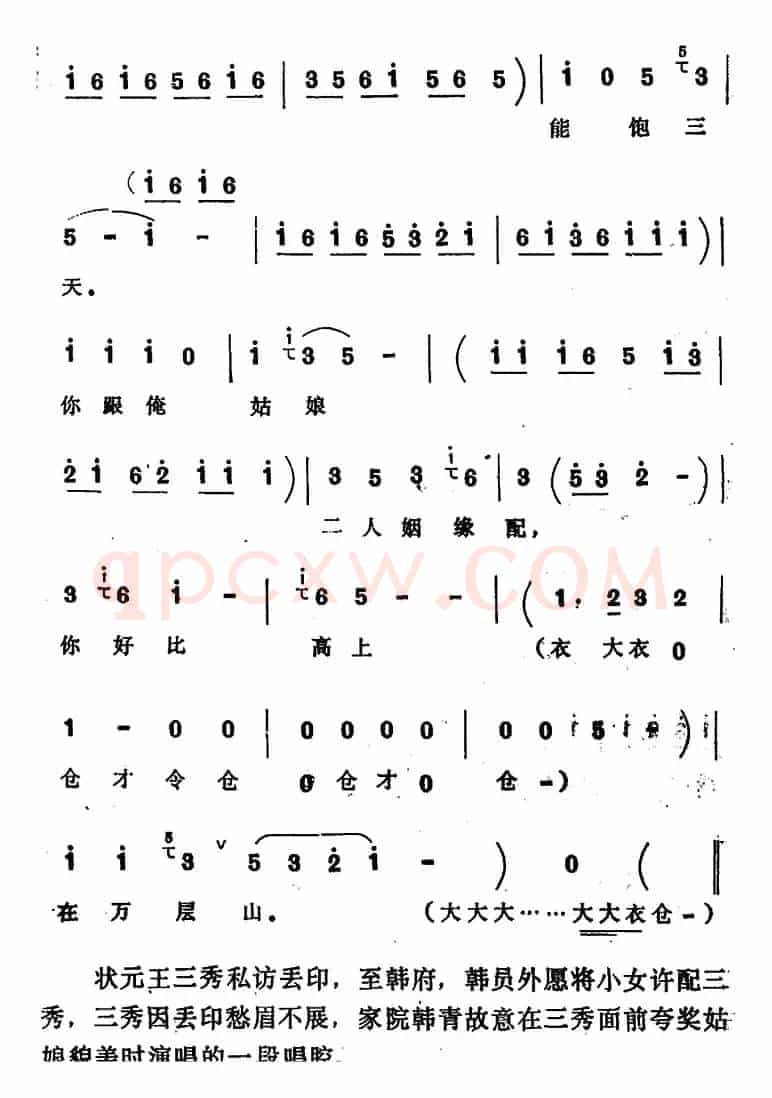 i 6 i 6 5 6 i 6 | 3 5 6 i 5 6 5 ) | i 0 5 5 3 |
能 饱 三
( i 6 i 6
5 - i - | i 6 i 6 5 3 2 i | 6 i 3 6 i i i ) |
天。
i i i 0 | i i 3 5 - | ( i i i 6 5 i 3 |
你 跟 俺 姑 娘
2 i 6 2 i i i ) | 3 5 3 i 6 | 3 ( 5 3 2 - ) |
二 人 姻 缘 配，
qpcxw.COM
3 i 6 i - | i 6 5 - - | ( 1. 2 3 2 |
你 好 比 高 上 （衣 大 衣 0
1 - 0 0 | 0 0 0 0 | 0 0 5 - ) |
仓 才 令 仓 0 仓 才 0 仓 -）
i i 5 3 ∨ 5 3 2 i - ) 0 ( ‖
在 万 层 山。 （大大大……大大衣仓 -）
状元王三秀私访丢印，至韩府，韩员外愿将小女许配三
秀，三秀因丢印愁眉不展，家院韩青故意在三秀面前夸奖姑
娘貌美时演唱的一段唱腔